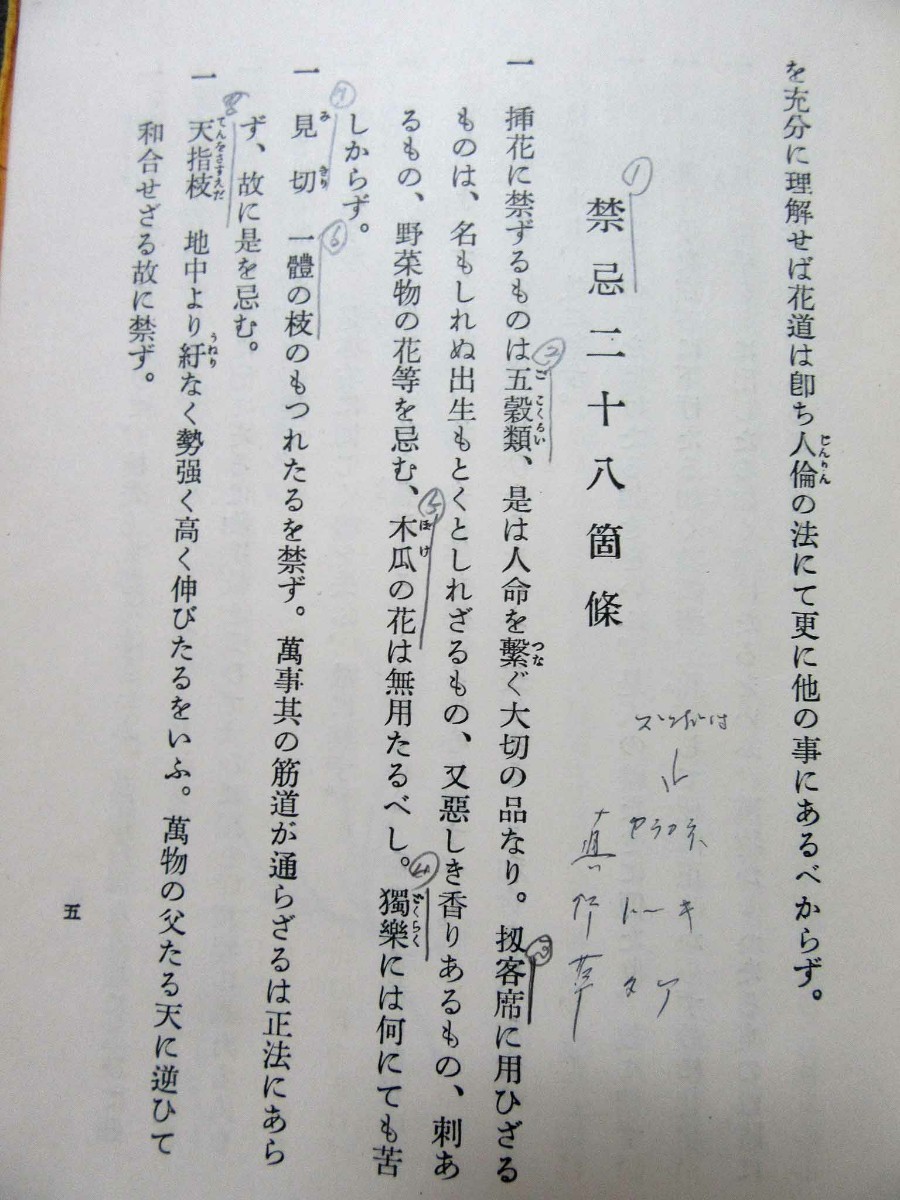 を充分に理解せば花道は卽ち人倫の法にて更に他の事にあるべからず。
じんりん
①
禁忌二十八箇條
一　挿花に禁ずるものは五穀類、是は人命を繫ぐ大切の品なり。扨客席に用ひざる
②
ごこくるい
つな
③
ものは、名もしれぬ出生もとくとしれざるもの、又惡しき香りあるもの、刺あ
るもの、野菜物の花等を忌む、木瓜の花は無用たるべし。獨樂には何にても苦
⑤
ぼけ
④
どくらく
しからず。
一　見切　一體の枝のもつれたるを禁ず。萬事其の筋道が通らざるは正法にあら
⑦
みきり
⑥
ず、故に是を忌む。
一　天指枝　地中より紆なく勢强く高く伸びたるをいふ。萬物の父たる天に逆ひて
⑧
てんをさすえだ
うねり
和合せざる故に禁ず。
真
五